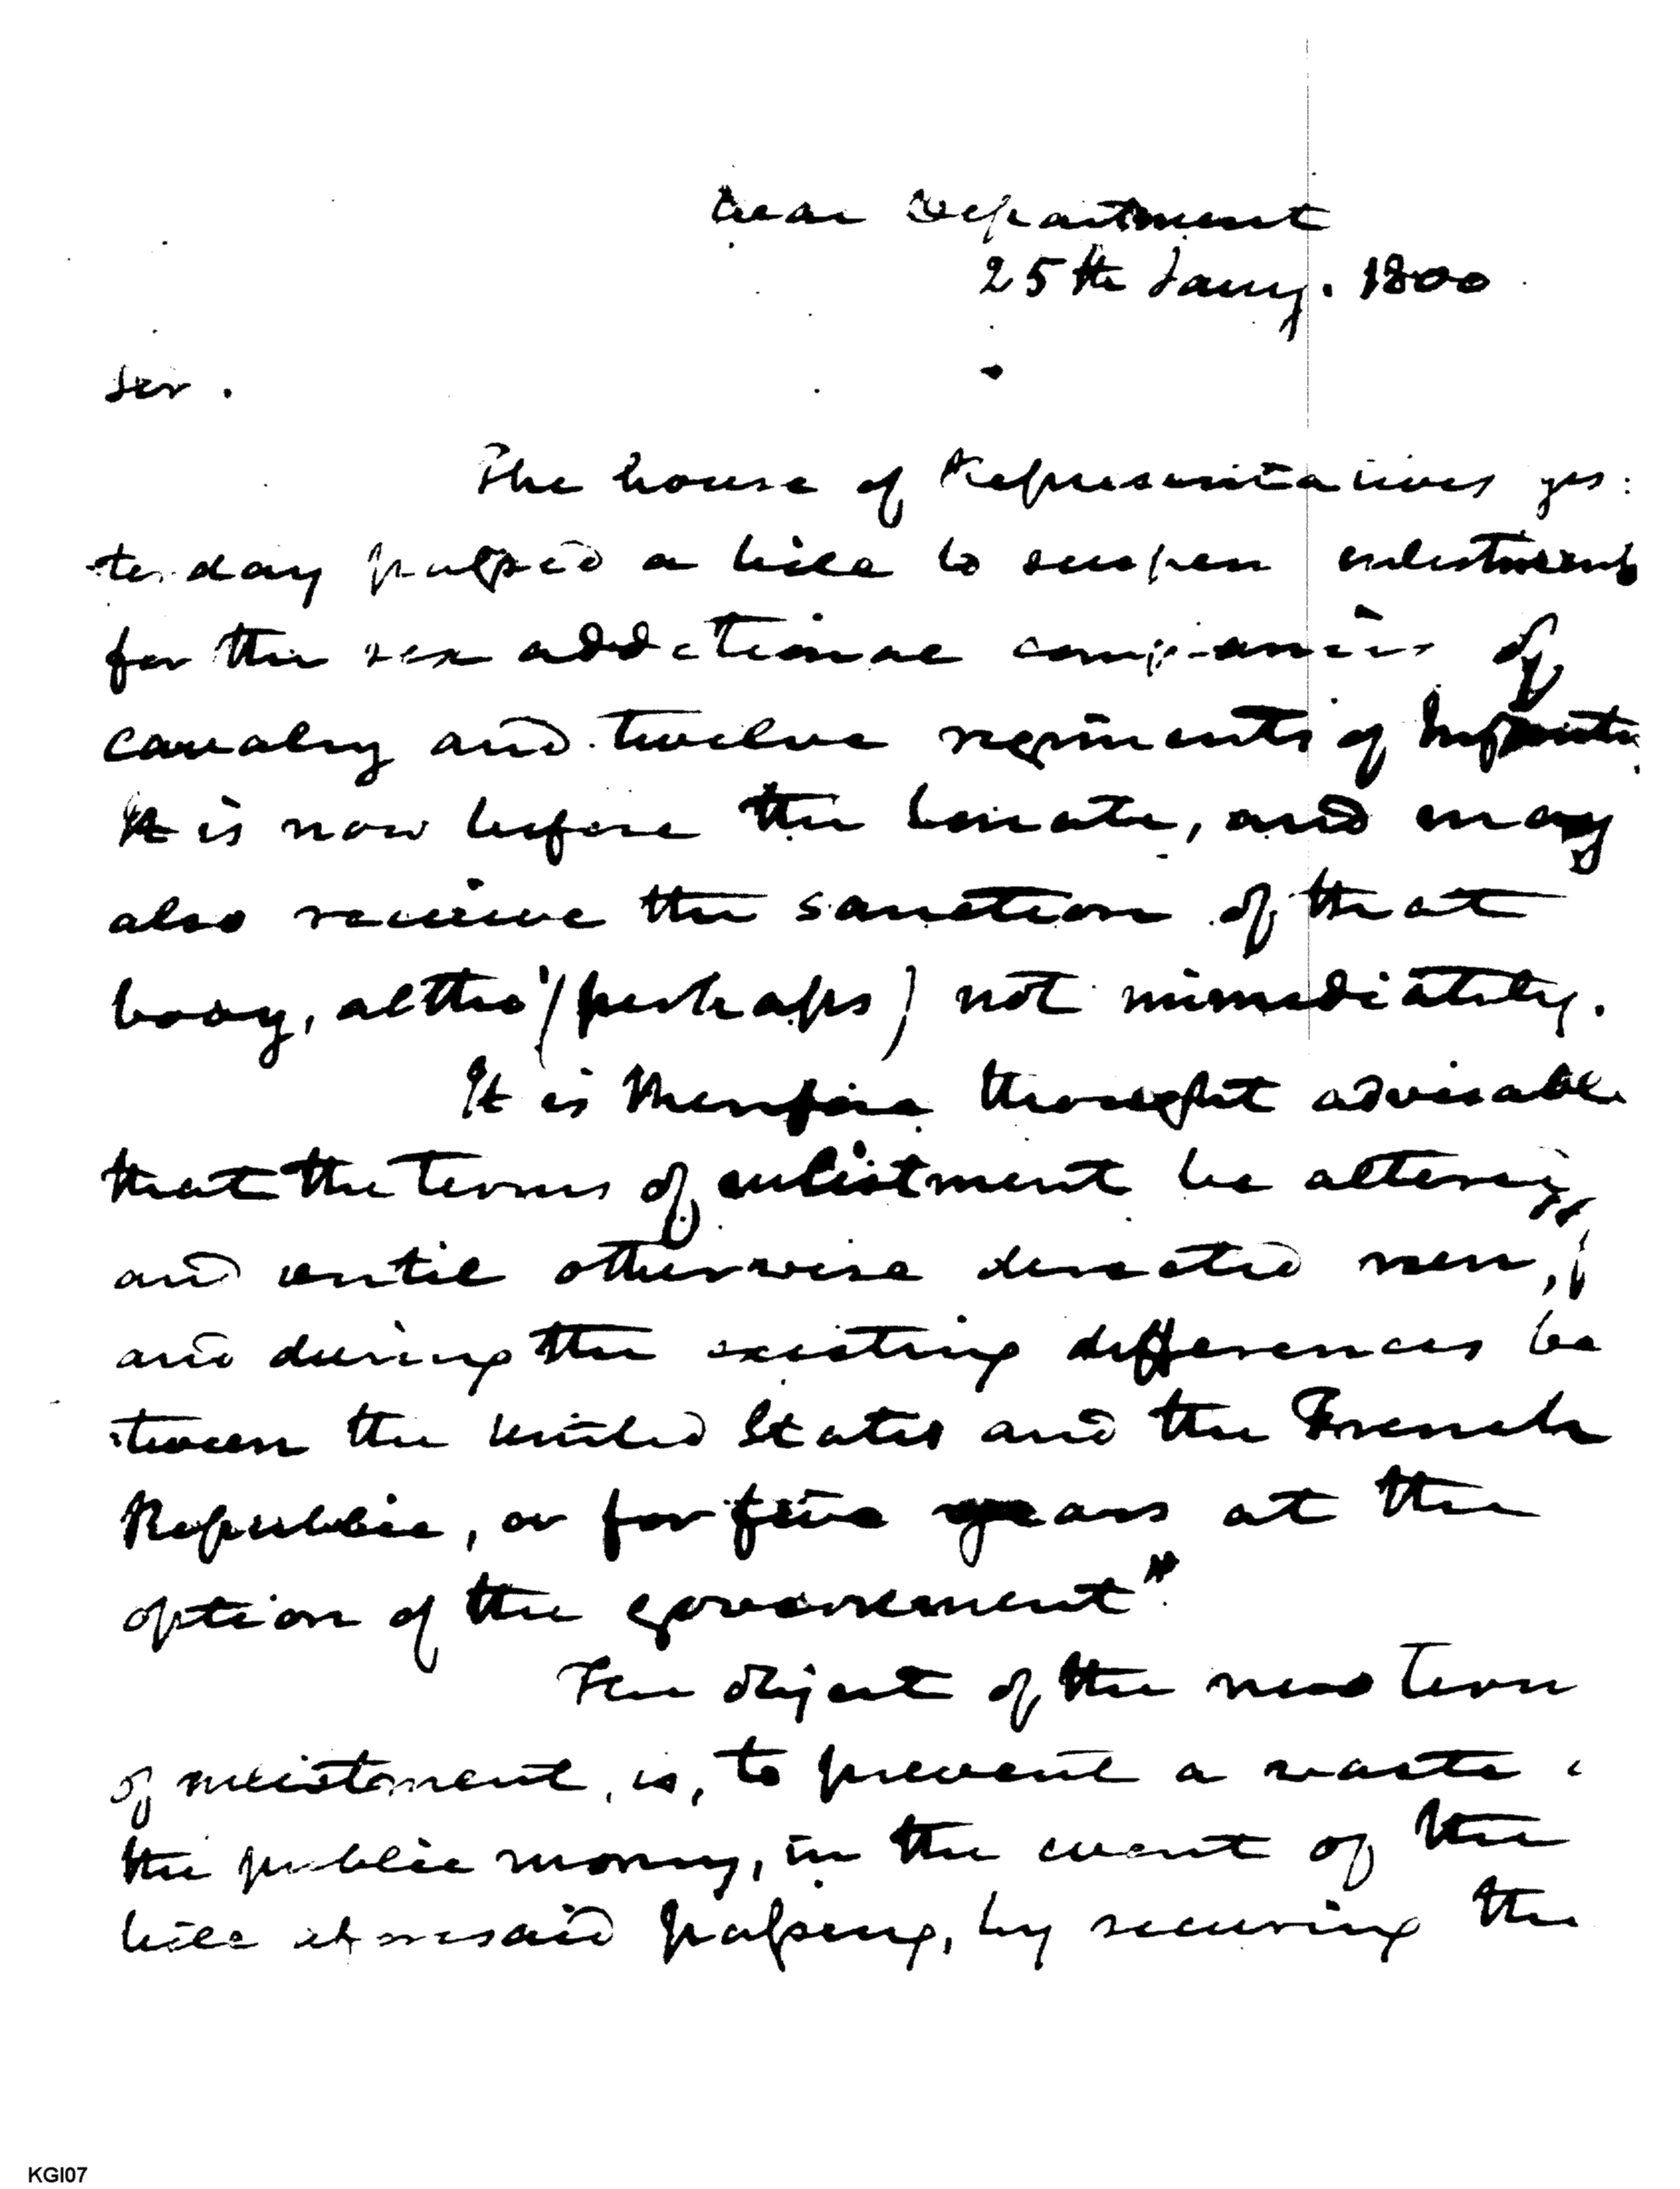 War Department
25th Jany. 1800
Sir.
The house of Representatives yes:
terday passed a bill to suspen enlistments
for the six additional companies of
cavalry and twelve regiments of Infantry
It is now before the Senate, and may
also receive the sanction of that
body, altho' (perhaps) not immediately.
It is therefore thought advisable
that the terms of enlistment be altered,
and until otherwise directed run,
and during the existing differences be
tween the United States and the French
Republic, or for five years at the
option of the government"
The object of the new term
of enlistment, is, to prevent a waste
the public money, in the event of the
bill aforesaid passing, by securing the
KGI07